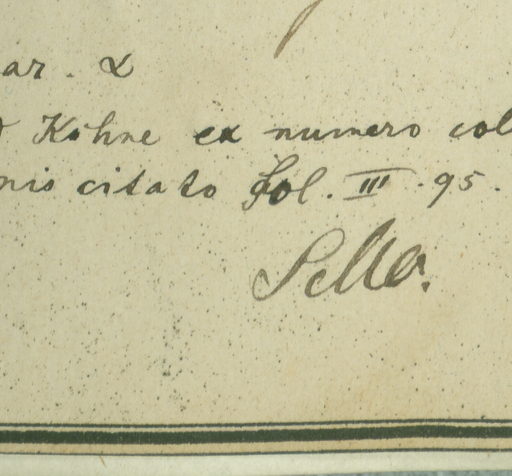 ar. α
Köhne ex numero col
nis citato Sol. III. 95.
Sello.